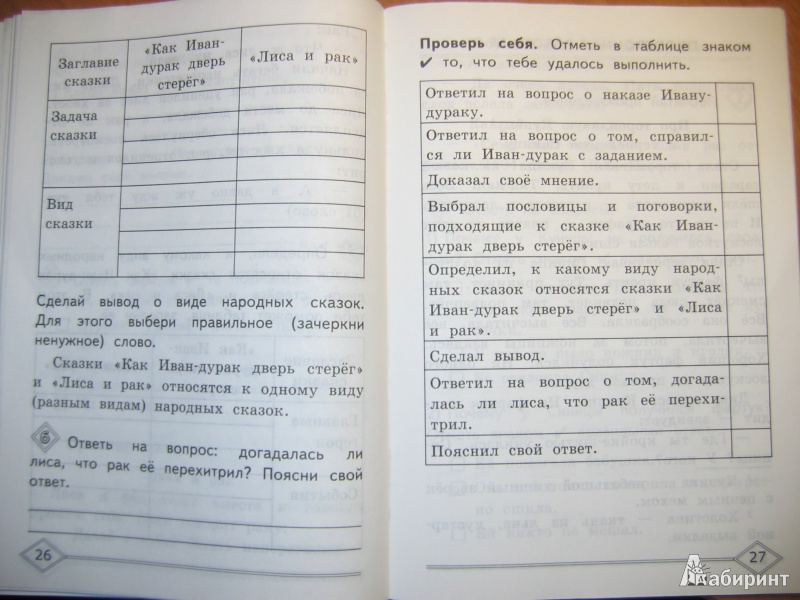 Заглавие сказки
«Как Иван-
дурак дверь
стерёг»
«Лиса и рак»
Задача
сказки
Вид
сказки
Сделай вывод о виде народных сказок.
Для этого выбери правильное (зачеркни
ненужное) слово.
Сказки «Как Иван-дурак дверь стерёг»
и «Лиса и рак» относятся к одному виду
(разным видам) народных сказок.
6 Ответь на вопрос: догадалась ли
лиса, что рак её перехитрил? Поясни свой
ответ.
26
Проверь себя. Отметь в таблице знаком
✔ то, что тебе удалось выполнить.
Ответил на вопрос о наказе Ивану-
дураку.
Ответил на вопрос о том, справил-
ся ли Иван-дурак с заданием.
Доказал своё мнение.
Выбрал пословицы и поговорки,
подходящие к сказке «Как Иван-
дурак дверь стерёг».
Определил, к какому виду народ-
ных сказок относятся сказки «Как
Иван-дурак дверь стерёг» и «Лиса
и рак».
Сделал вывод.
Ответил на вопрос о том, догада-
лась ли лиса, что рак её перехи-
трил.
Пояснил свой ответ.
27
Лабиринт